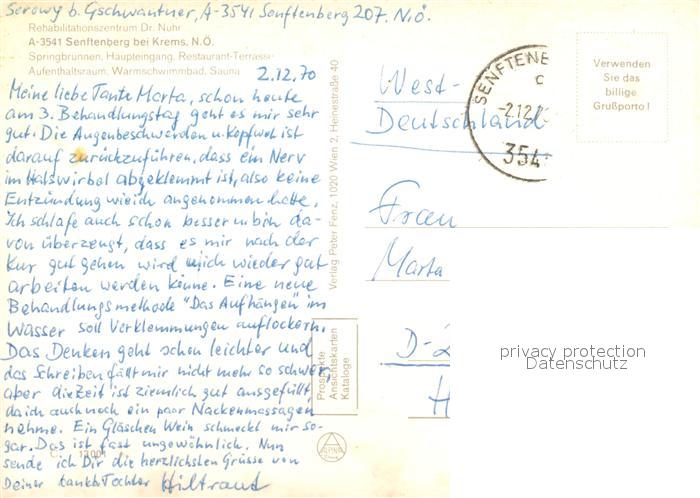 Serowy b. Gschwantner, A-3541 Senftenberg 207. N.Ö.
Rehabilitationszentrum Dr. Nuhr
A-3541 Senftenberg bei Krems, N.Ö.
Springbrunnen, Haupteingang, Restaurant-Terrasse
Aufenthaltsraum, Warmschwimmbad, Sauna
2.12.70
Meine liebe Tante Marta, schon heute
am 3. Behandlungstag geht es mir sehr
gut. Die Augenbeschwerden u. Kopfweh ist
darauf zurückzuführen, dass ein Nerv
im Halswirbel abgeklemmt ist, also keine
Entzündung wie ich angenommen hatte.
Ich schlafe auch schon besser u. bin da-
von überzeugt, dass es mir nach der
Kur gut gehen wird u. ich wieder gut
arbeiten werden könne. Eine neue
Behandlungsmethode "Das Aufhängen" im
Wasser soll Verklemmungen auflockern.
Das Denken geht schon leichter und
das Schreiben fällt mir nicht mehr so schwer,
aber die Zeit ist ziemlich gut ausgefüllt,
da ich auch noch ein paar Nackenmassagen
nehme. Ein Gläschen Wein schmeckt mir so-
gar. Das ist fast ungewöhnlich. Nun
sende ich Dir die herzlichsten Grüsse von
Deiner dankb. Tochter Hiltraud
Verlag Peter Fenz, 1020 Wien 2, Heinestraße 40
Prospekte
Ansichtskarten
Kataloge
SENFTENB
-2.12.
354
Verwenden
Sie das
billige
Grußporto!
West-
Deutschland
Frau
Marta
D-2
H
privacy protection
Datenschutz